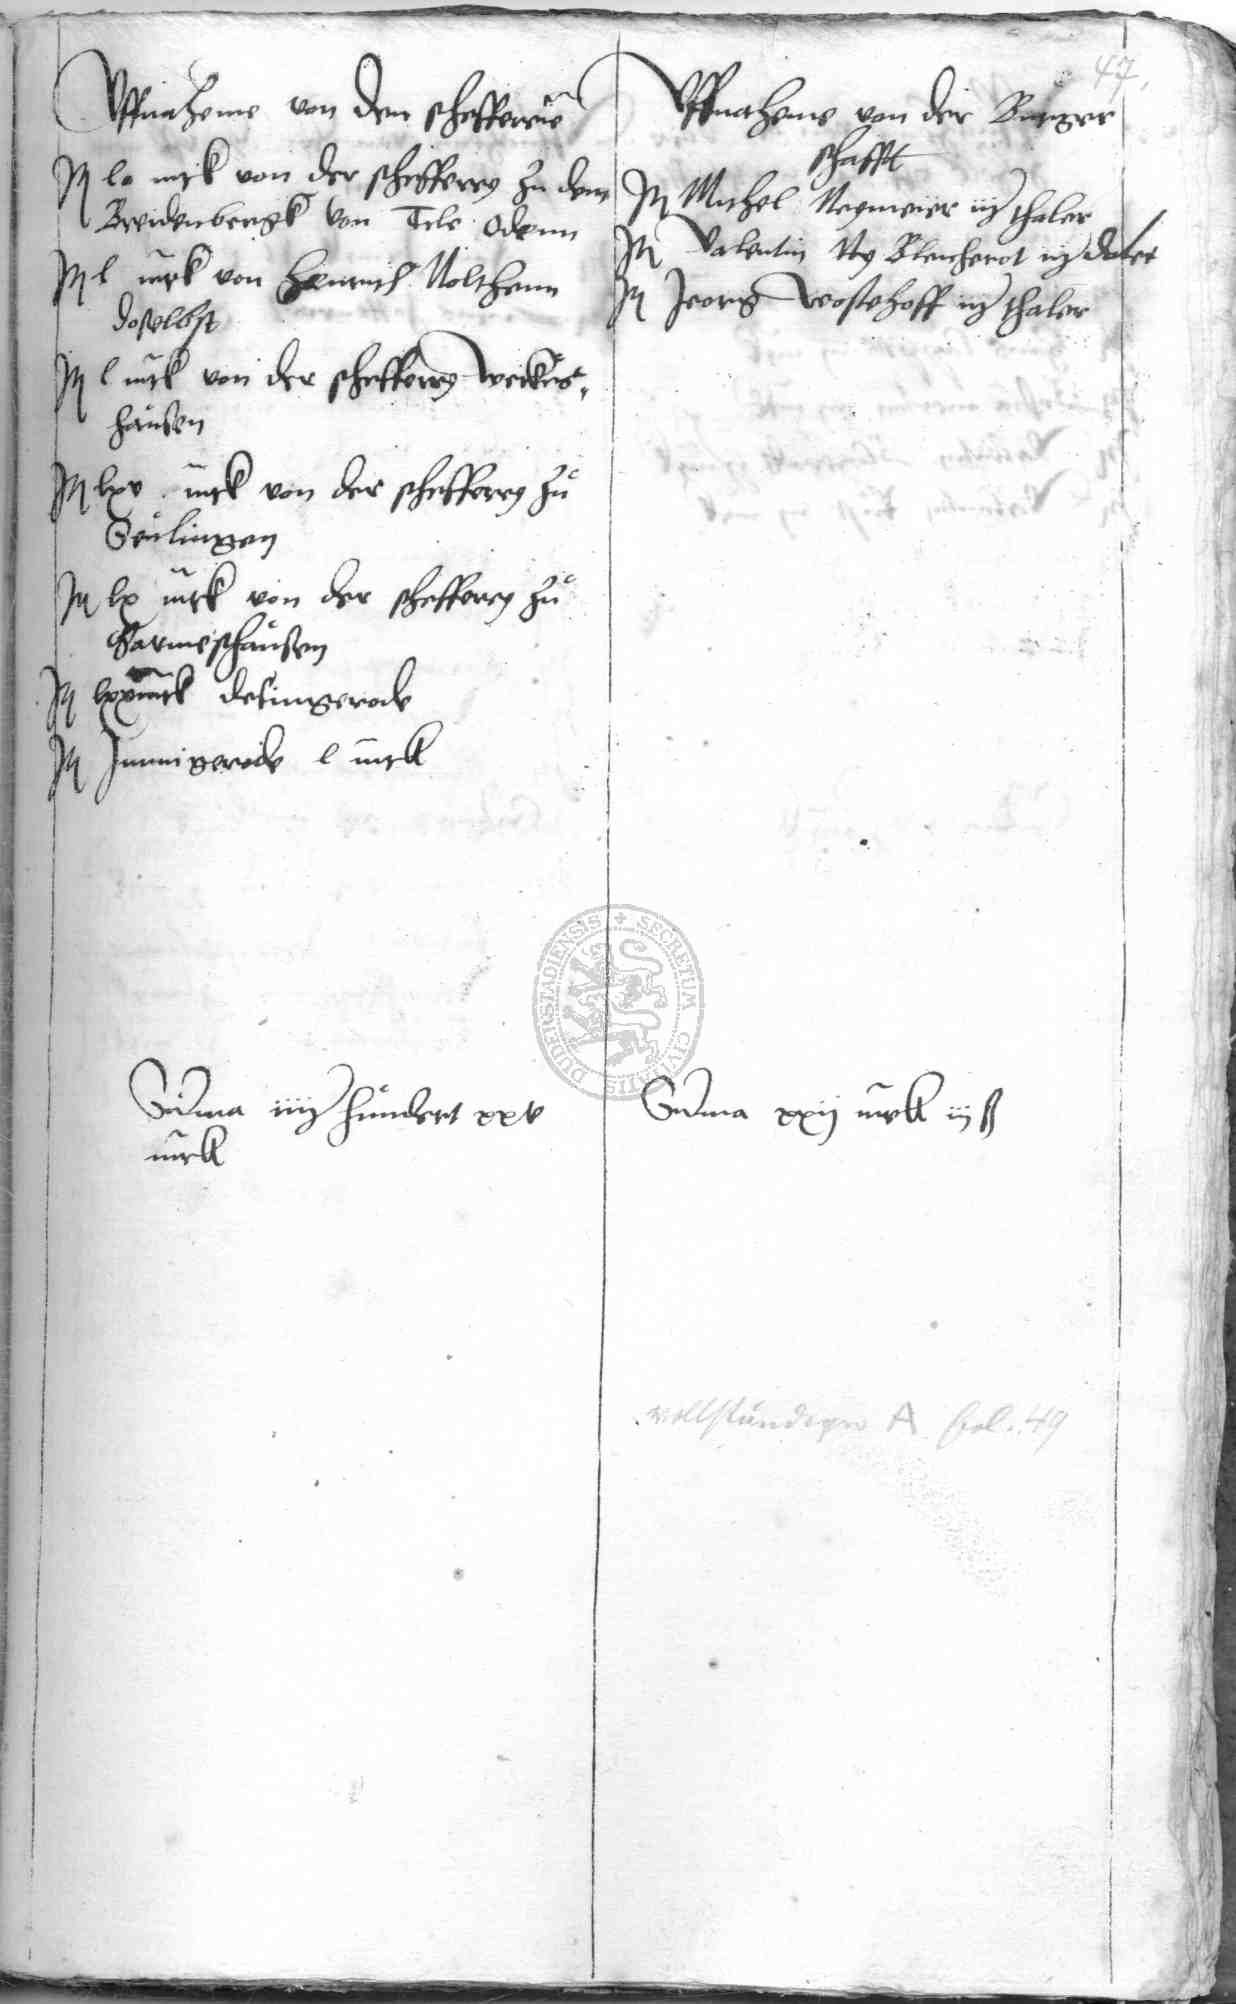 47.
Uffnaheme von den schefferrie
It l mrk von der schefferey zu dem
Breidenbergk von Tile Odenn
It l mrk von Heinrich Nolthenn
doselbst
It l mrk von der schefferey
hausen
It lxv mrk von der schefferey zu
Seulingen
It lx mrk von der schefferey zu
Garmeshausen
It mrk desingerode
It Immigerode l mrk
Summa iiij hundert xxv
mrk
Uffnaheme von der Burger
schafft
It Michel Neymeier iij thaler
It Valentin Blencherot iij daler
It Jeorg Wostehoff iij thaler
Summa xxij mrk iij ß
vollständiger A fol. 49
SECRETUM CIVITATIS DUDERSTADIENSIS